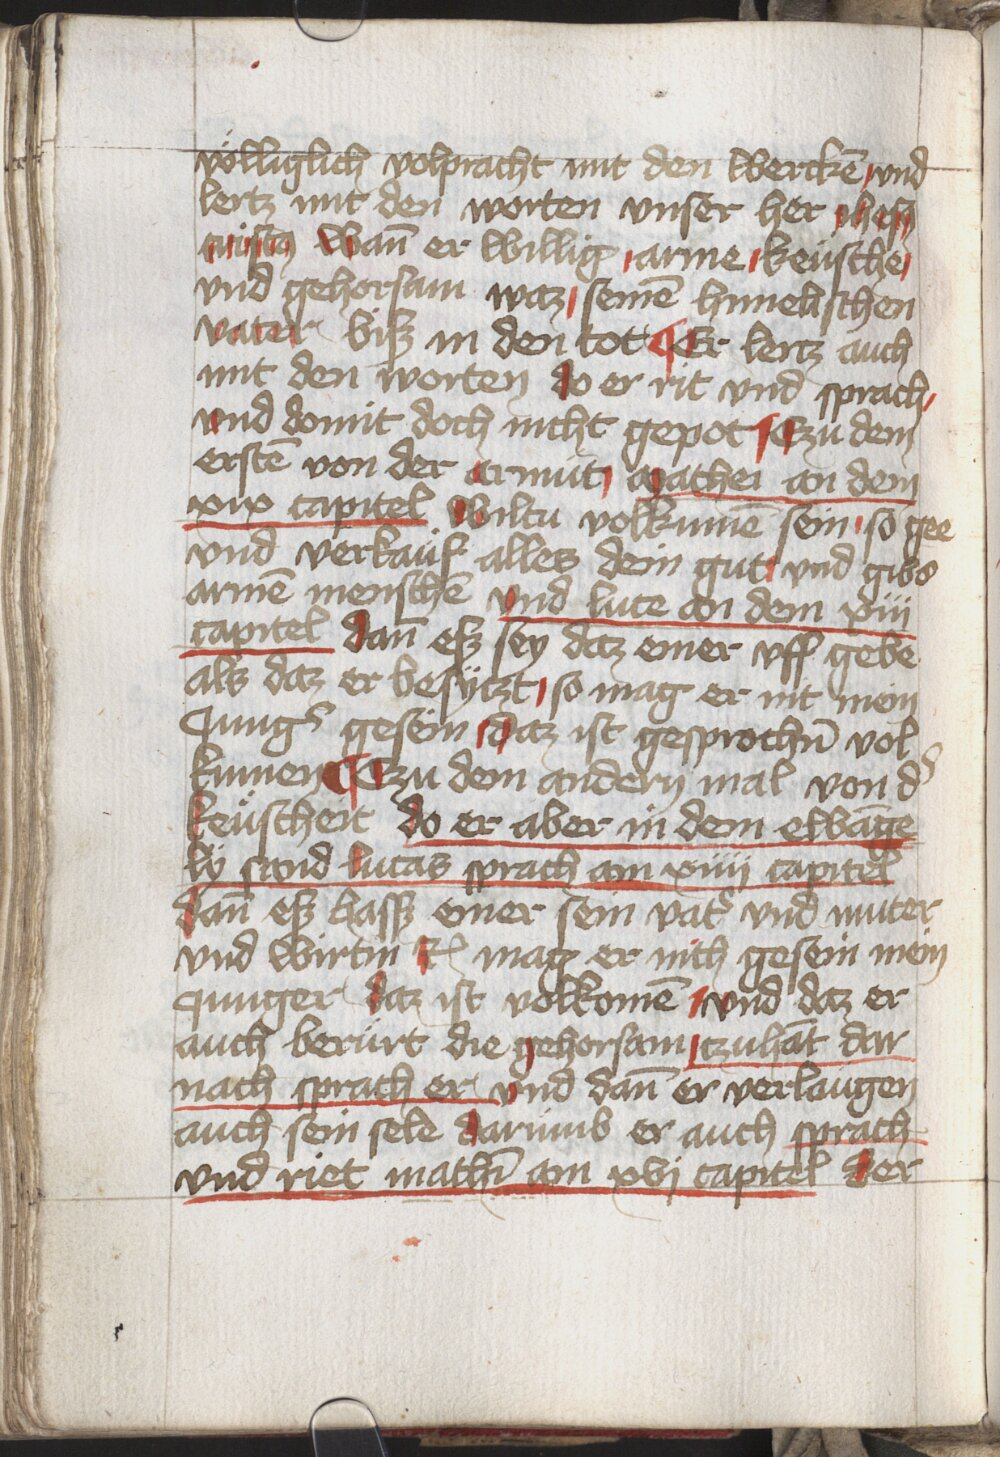 völliglich volpracht mit den werckē vnd
lertz mit den worten vnser her ihesꝰ
cristꝰ wan̄ er willig arme keüsche
vnd gehorsam waz seinē himelischen
vater biß in den tot ¶ Er lertz auch
mit den worten do er rit vnd sprach
vnd domit doch nicht gepot ¶ Czu dem
erstē von der armut mathei an dem
xix capitel Wiltu volkumē sein so gee
vnd verkauf alles dein gut vnd gibs
armē menschē vnd luce an dem xiiii
capitel dan̄ eß sey daz einer vff gebe
als daz er besytzt so mag er nit mein
Jungr̄ gesein daz ist gesprochn̄ vol
kumen ¶ Czu dem andern mal von d̄
keüscheit do er aber in dem ewāge
ly sand lucas sprach am xiiij capitel
dan̄ eß hass einer sein vatr̄ vnd muter
vnd wirtin ꝛc mag er nich gesein mein
Junger daz ist volkomē vnd daz er
auch berürt die gehorsam tzuhāt dar
nach sprach er vnd dan̄ er verlaugen
auch sein sele darumb er auch sprach
vnd riet mathī am xvj capitel der